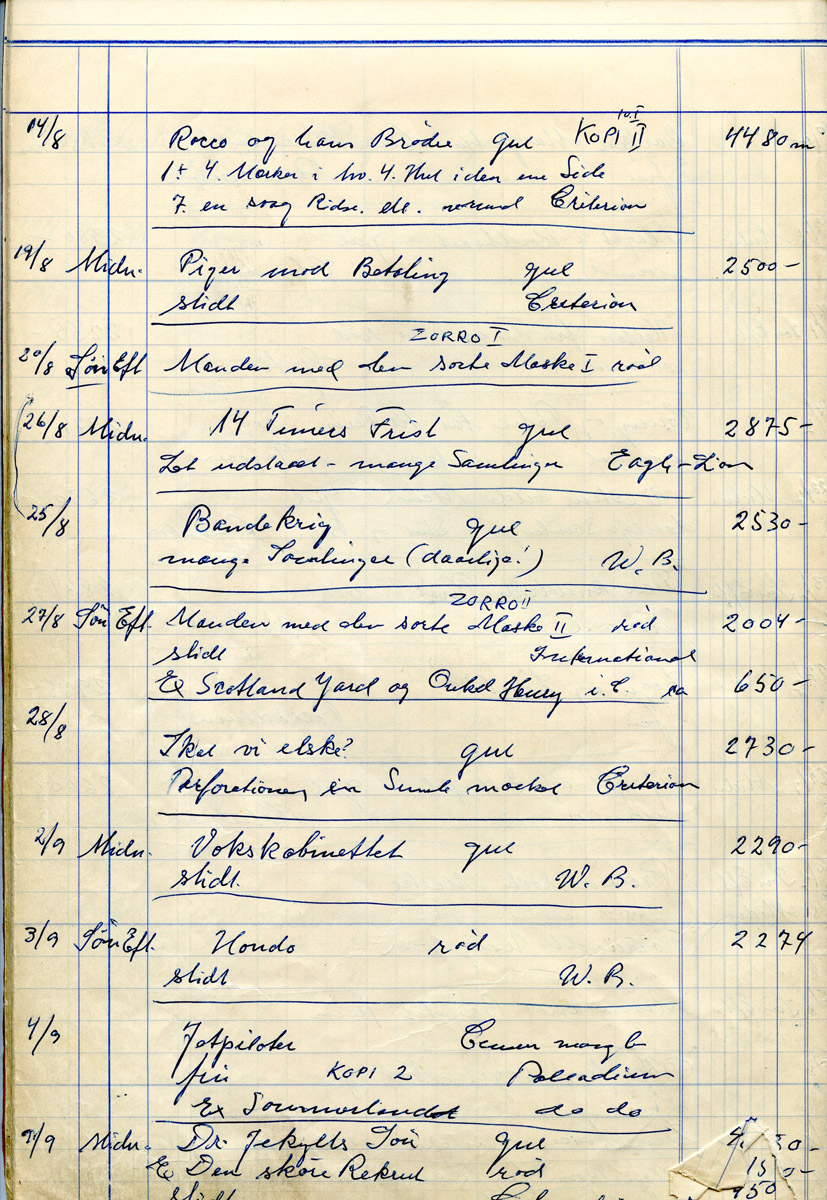 14/8 Rocco og hans Brødre gul KOPI II 4480 m
1 + 4. Mærker i hv. 4. Hul i den ene Side
7. en svag Ridse. ell. normal Criterion
19/8 Midn. Piger mod Betaling gul 2500-
slidt Criterion
ZORRO I
20/8 Søn Eft Manden med den sorte Maske I rød
26/8 Midn. 14 Timers Frist gul 2875-
Let udstanset - mange Samlinger Eagle-Lion
25/8 Bandekrig gul 2530-
mange Samlinger (daarlige!) W. B.
ZORRO II
27/8 Søn Eft. Manden med den sorte Maske II rød 2004-
slidt International
Ex Scotland Yard og Onkel Henry i. C. ca 650-
28/8
Skal vi elske? gul 2730-
Perforationen en Smule mærket Criterion
2/9 Midn. Vokskabinettet gul 2290-
slidt. W. B.
3/9 Søn Eft. Hondo rød 2274
slidt W. B.
4/9 Jetpiloter
fin KOPI 2 Palladium
Ex Sommerlandet do do
9/9 Midn. Dr. Jekylls Søn gul
Ex Den skøre Rekrut rød
slidt 950